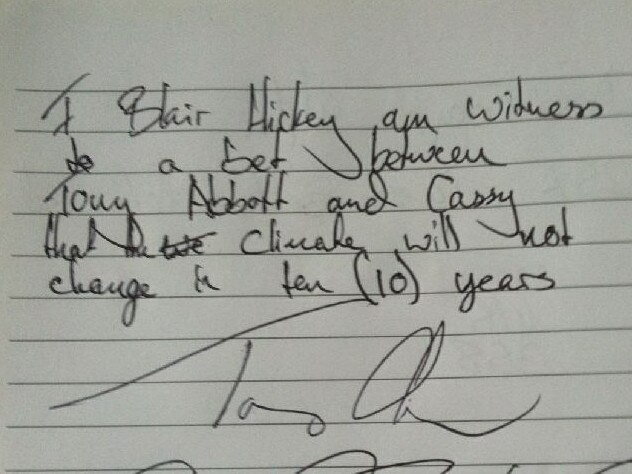 I Blair Hickey am witness
to a bet between
Tony Abbott and Cassy
that the climate will not
change in ten (10) years